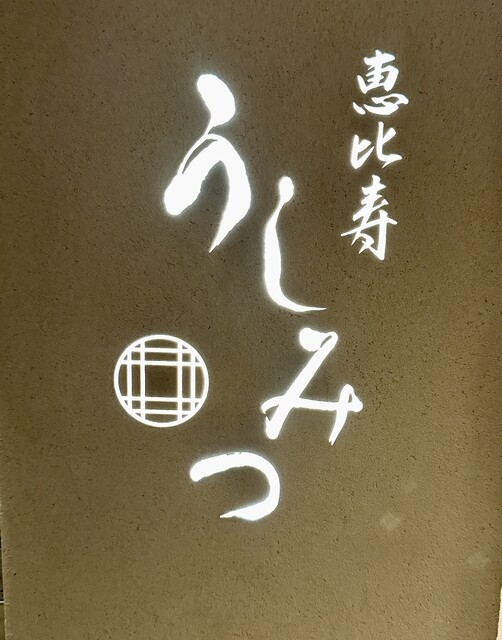 恵比寿
うしみつ